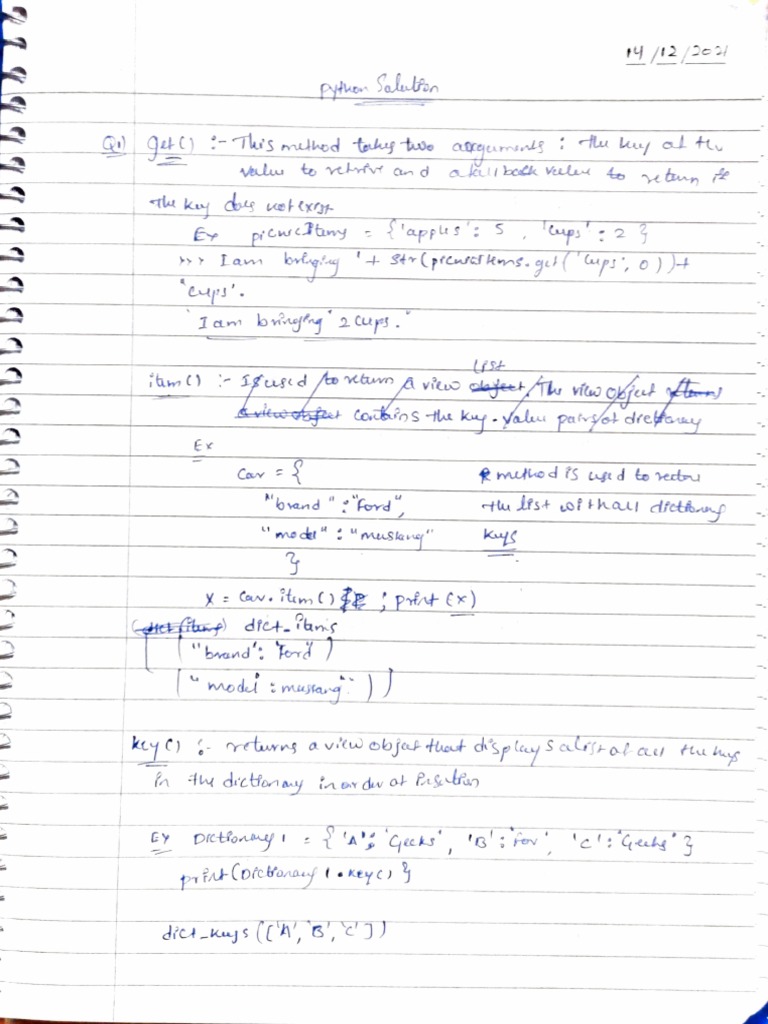 14/12/2021
python Solution
Q1) get() :- This method takes two arguments : the key of the
value to retrive and a fallback value to return if
the key does not exist
Ex picnicItems = {'apples': 5 , 'cups' : 2 }
>>> I am bringing '+ str(picnicitems.get('cups', 0))+
'cups'.
"I am bringing 2 cups."
list
item() :- Is used to return a view object. The view object returns
a view object contains the key-value pairs of dictionary
Ex
Car = { method is used to return
"brand" : "Ford", the list with all dictionary
"model" : "mustang" keys
}
x = car.item() ; print (x)
dict_items
("brand': 'Ford')
(" model : mustang" ) )
key() :- returns a view object that displays a list of all the keys
in the dictionary in order of insertion
Ex Dictionary1 = { 'A': 'Geeks', 'B': 'For', 'C': 'Geeks' }
print(Dictionary1.key() }
dict_keys(['A', 'B', 'C'])